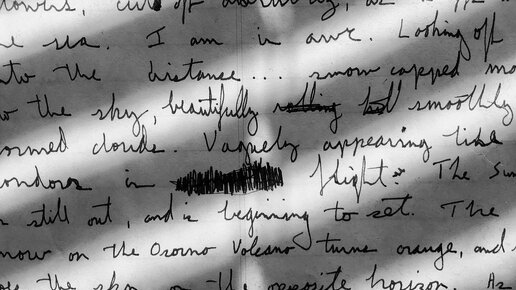 cut off
he sea. I am in awe. Looking off
nto the distance... snow capped mo
the sky, beautifully smoothly
ormed clouds. Vaguely appearing like
ondors in flight. The sun
s still out, and is beginning to set. The
now on the Osorno Volcano turns orange, and
the sky on the opposite horizon. As